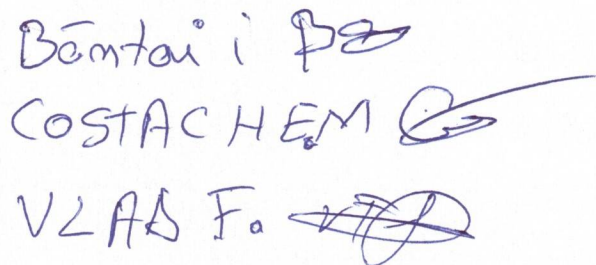 Bântai i
COSTACHE.M
VLAD F.